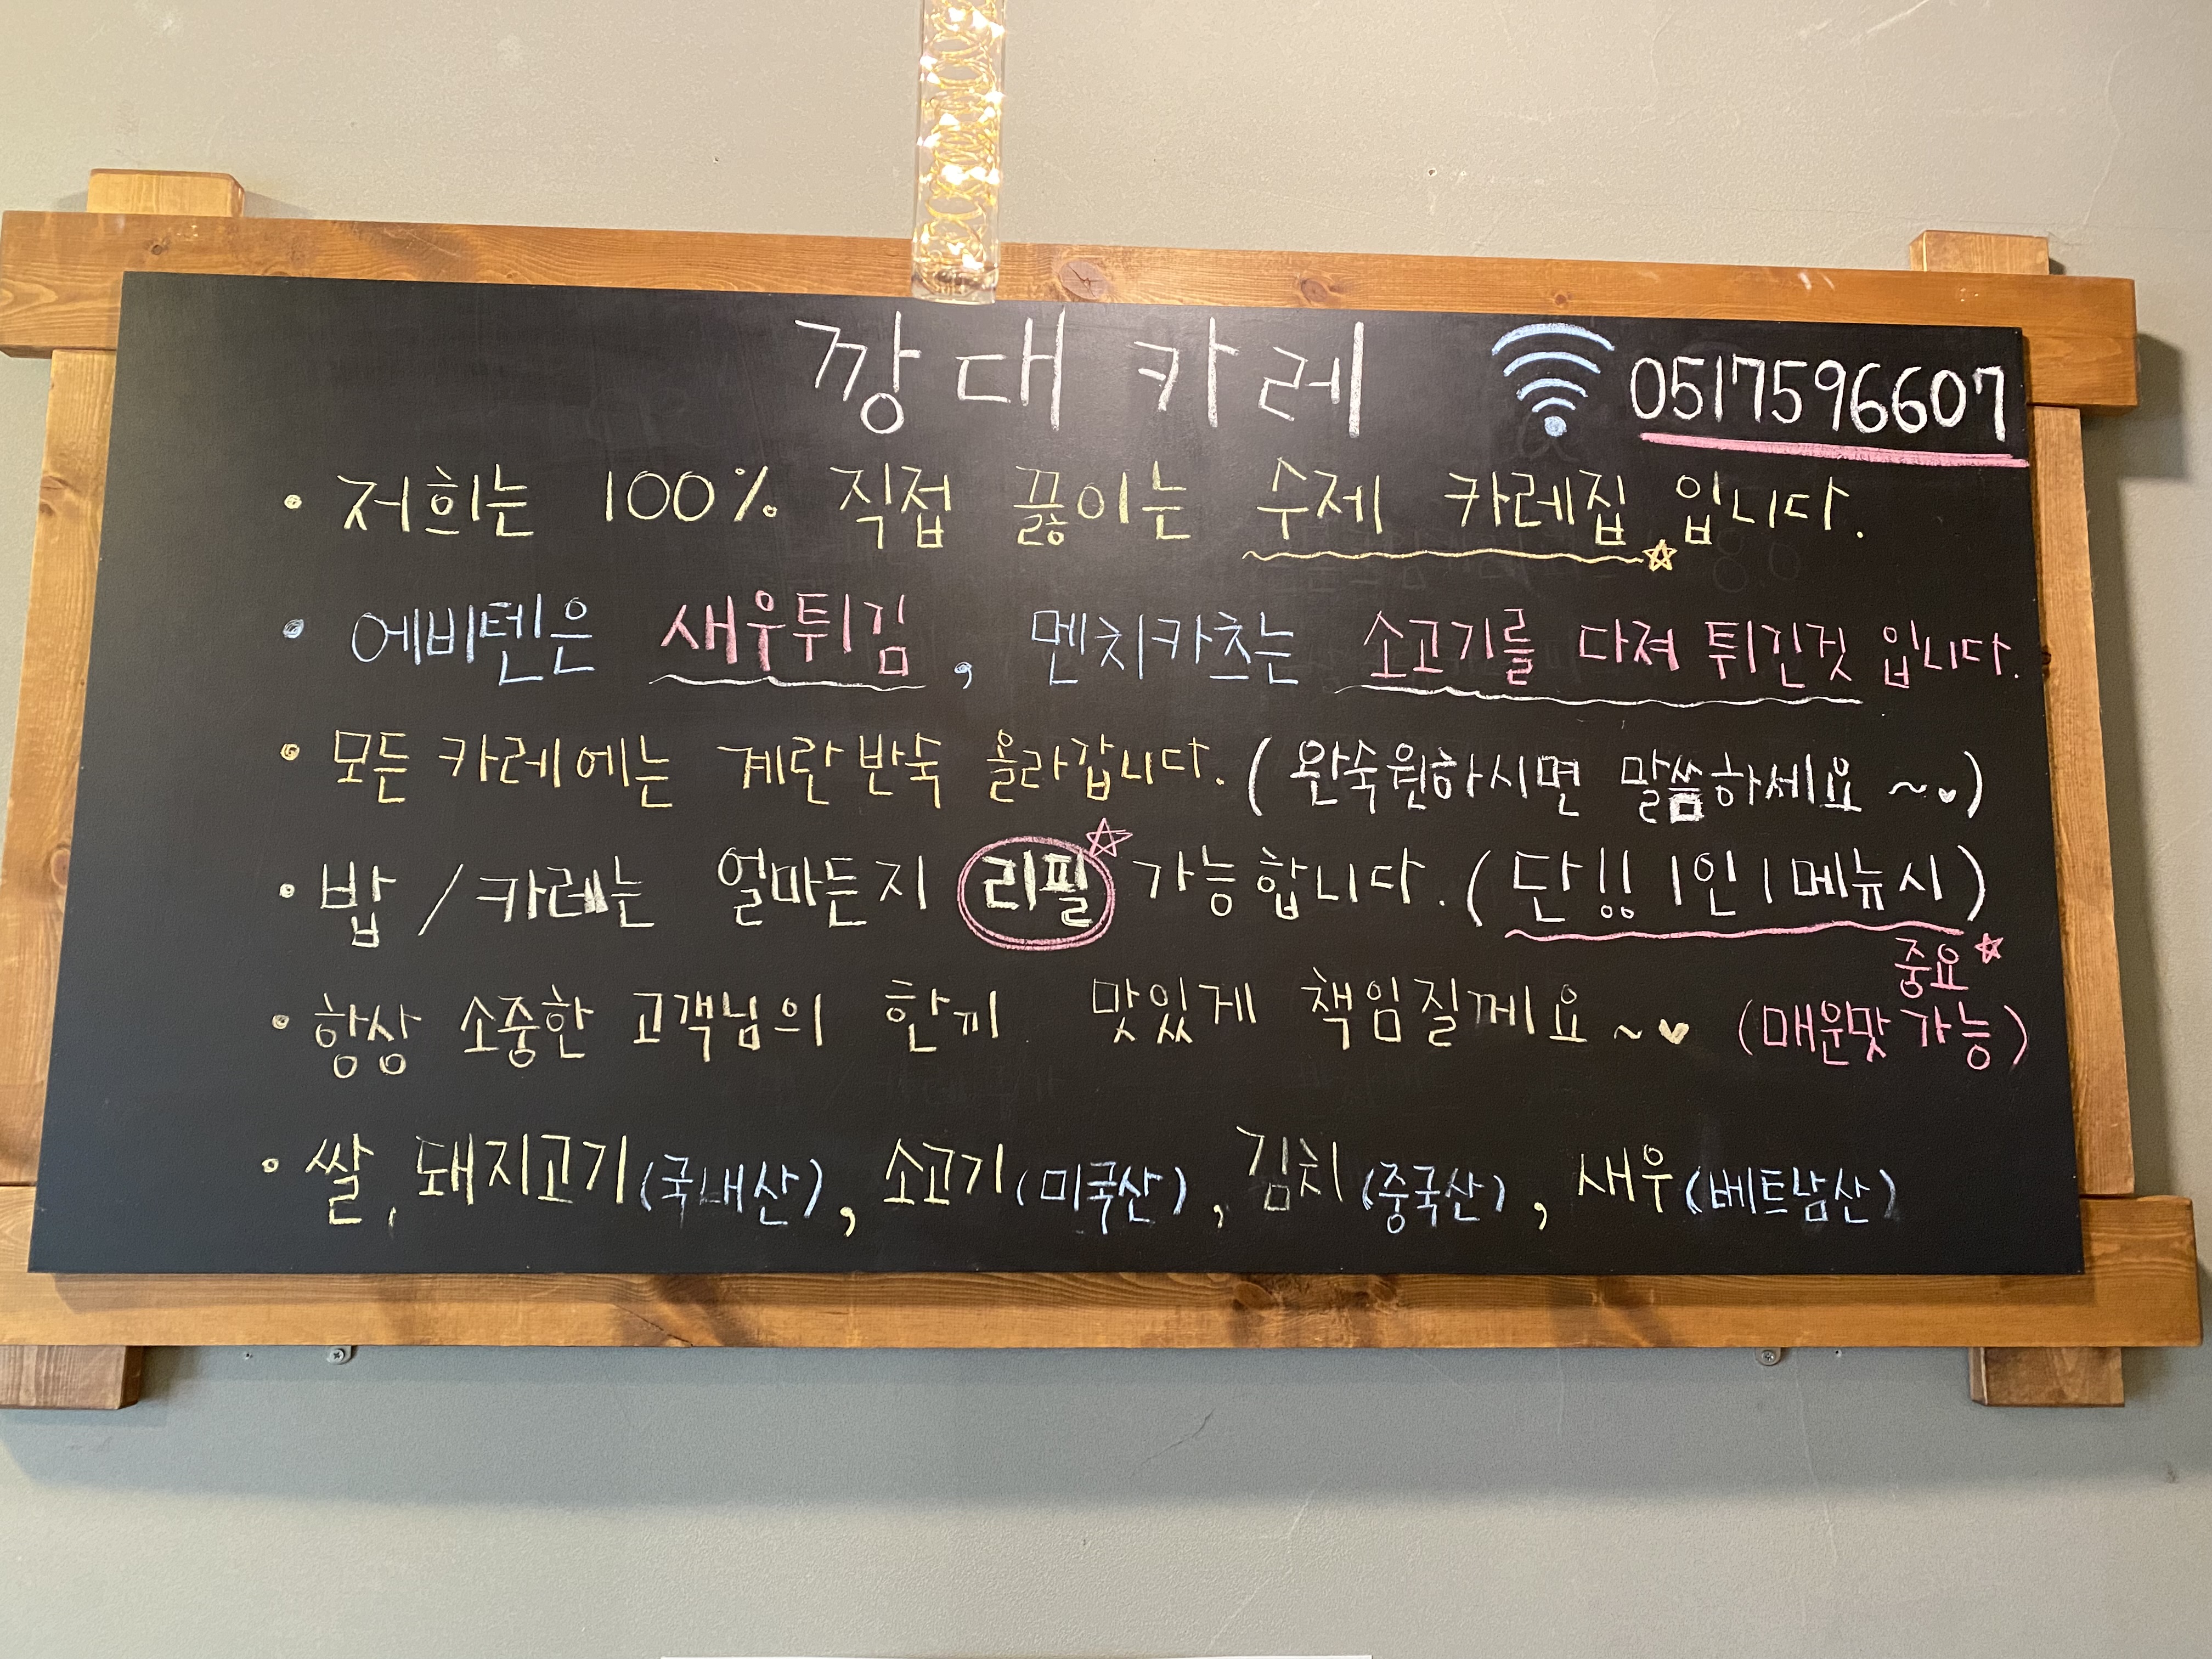 깡대카레 0517596607
• 저희는 100% 직접 끓이는 수제 카레집 입니다.
• 에비텐은 새우튀김, 멘치카츠는 소고기를 다져 튀긴것 입니다.
• 모든 카레에는 계란반숙 올라갑니다. (완숙원하시면 말씀하세요~♥)
• 밥/카레는 얼마든지 리필☆ 가능합니다. (단!! 1인 1메뉴시)
중요☆
• 항상 소중한 고객님의 한끼 맛있게 책임질께요~♥ (매운맛 가능)
• 쌀, 돼지고기(국내산), 소고기(미국산), 김치(중국산), 새우(베트남산)